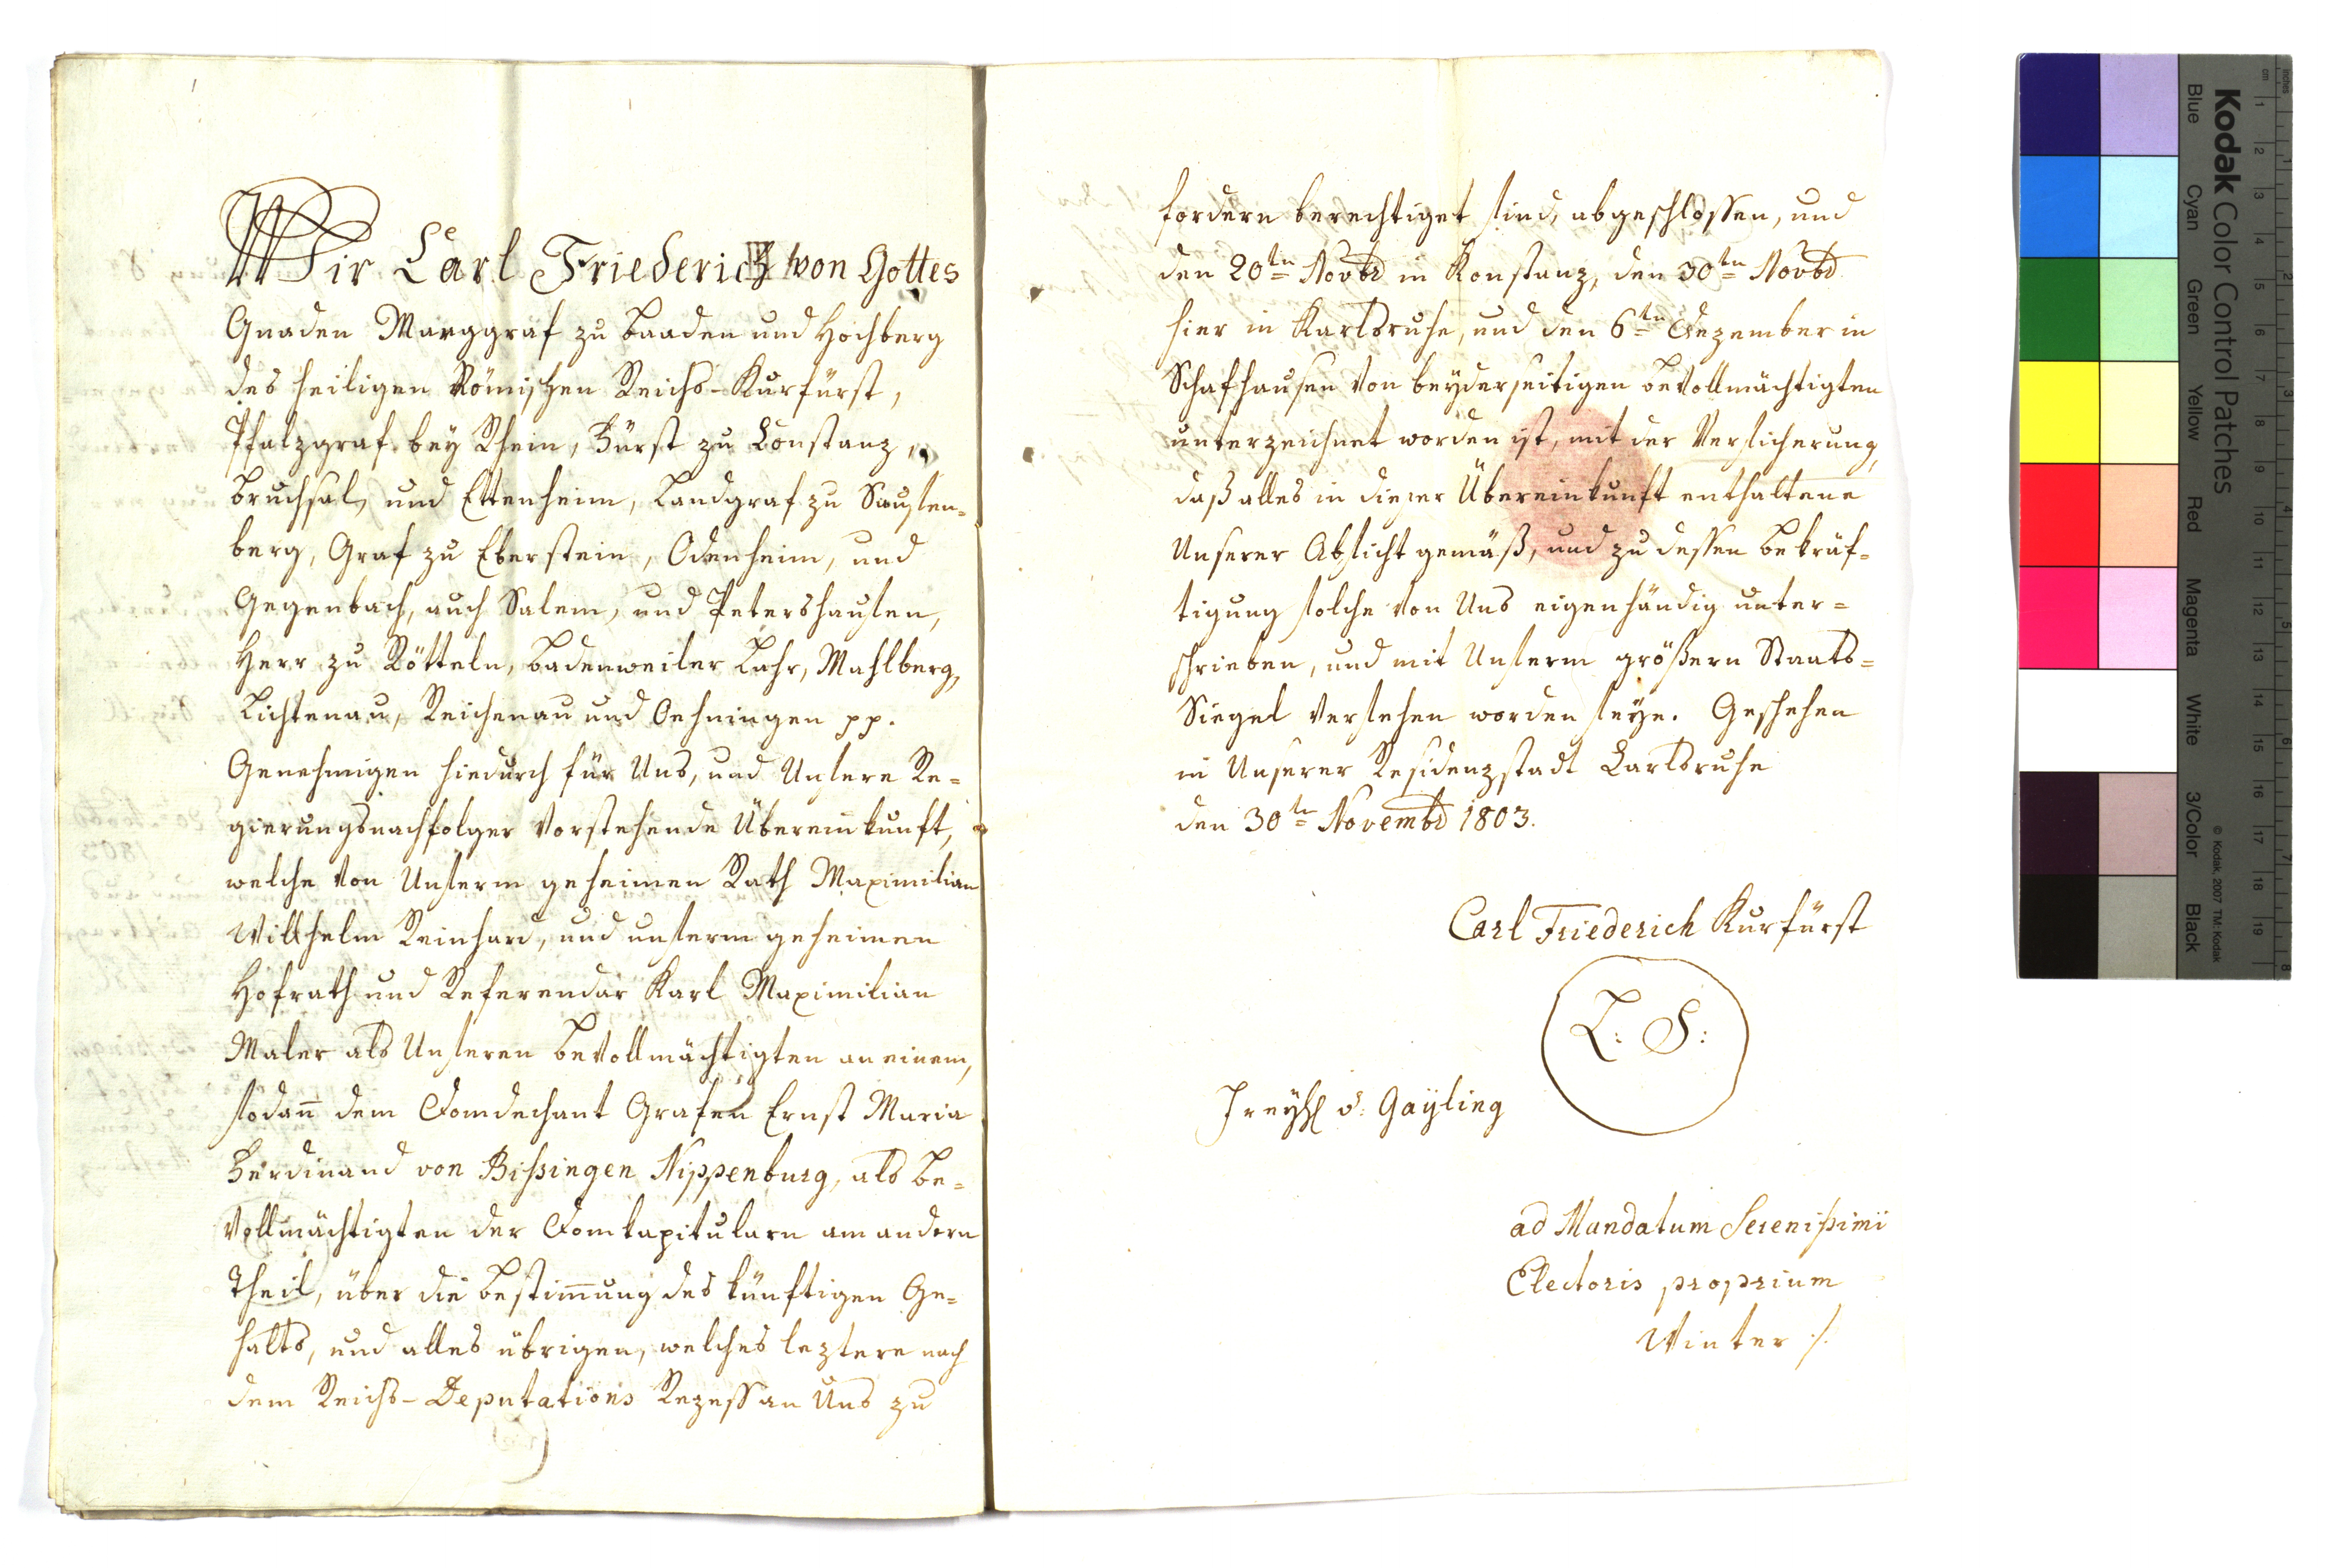 Wir Carl Friederich von Gottes
Gnaden Marggraf zu Baaden und Hochberg
des heiligen Römischen Reichs-Kurfürst,
Pfalzgraf bey Rhein, Fürst zu Constanz,
Bruchsal, und Ettenheim, Landgraf zu Sausen-
berg, Graf zu Eberstein, Odenheim, und
Gegenbach, auch Salem, und Petershausen,
Herr zu Rötteln, Badenweiler Lahr, Mahlberg,
Lichtenau, Reichenau und Oehningen pp.
Genehmigen hiedurch für Uns, und Unsere Re-
gierungsnachfolger vorstehende Übereinkunft,
welche von Unserm geheimen Rath Maximilian
Willhelm Reinhard, und unserm geheimen
Hofrath und Referendär Karl Maximilian
Maler als Unseren Bevollmächtigten an einem,
sodañ dem Domdechant Grafen Ernst Maria
Ferdinand von Bißingen Nippenburg, als Be-
vollmächtigten der Domkapitularn am andern
Theil, über die Bestim̄ung des künftigen Ge-
halts, und alles übrigen, welches leztere nach
dem Reichs-Deputations Rezess an Uns zu
fordern berechtiget sind, abgeschlossen, und
den 20ten Novbr in Konstanz, den 30ten Novbr
hier in Karlsruhe, und den 6ten Dezember in
Schafhausen von beyderseitigen Bevollmächtigten
unterzeichnet worden ist, mit der Versicherung,
daß alles in dieser Übereinkunft enthaltene
Unserer Absicht gemäß, und zu dessen Bekräf-
tigung solche von Uns eigenhändig unter=
schrieben, und mit Unserm größern Staats=
Siegel versehen worden seye. Geschehen
in Unserer Residenzstadt Carlsruhe
den 30ten Novembr 1803.
Carl Friederich Kurfürst
L: S:
Freyh v: Gayling
ad Mandatum Serenißimi
Electoris proprium
Winter /.
Kodak Color Control Patches
Blue Cyan Green Yellow Red Magenta White 3/Color Black
© Kodak, 2007 TM: Kodak
cm 1 2 3 4 5 6 7 8 9 10 11 12 13 14 15 16 17 18 19
Inches 1 2 3 4 5 6 7 8